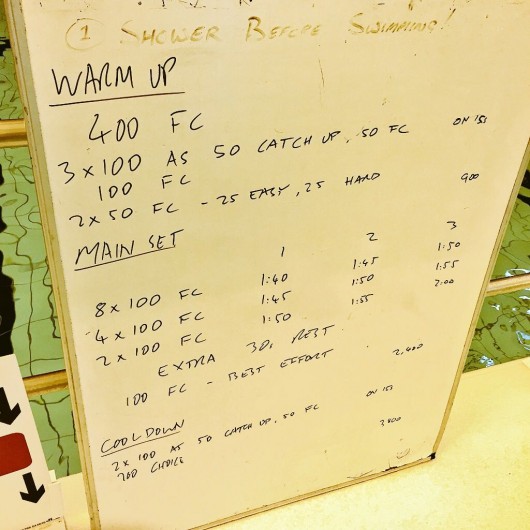 ① SHOWER BEFORE SWIMMING!
WARM UP
400 FC
3x100 AS 50 CATCH UP, 50 FC ON 15s
100 FC
2x50 FC - 25 EASY, 25 HARD 900
MAIN SET
1 2 3
8x100 FC 1:40 1:45 1:50
4x100 FC 1:45 1:50 1:55
2x100 FC 1:50 1:55 2:00
EXTRA 30s REST
100 FC - BEST EFFORT 2,400
COOLDOWN
2x100 AS 50 CATCH UP, 50 FC ON 15s
200 CHOICE